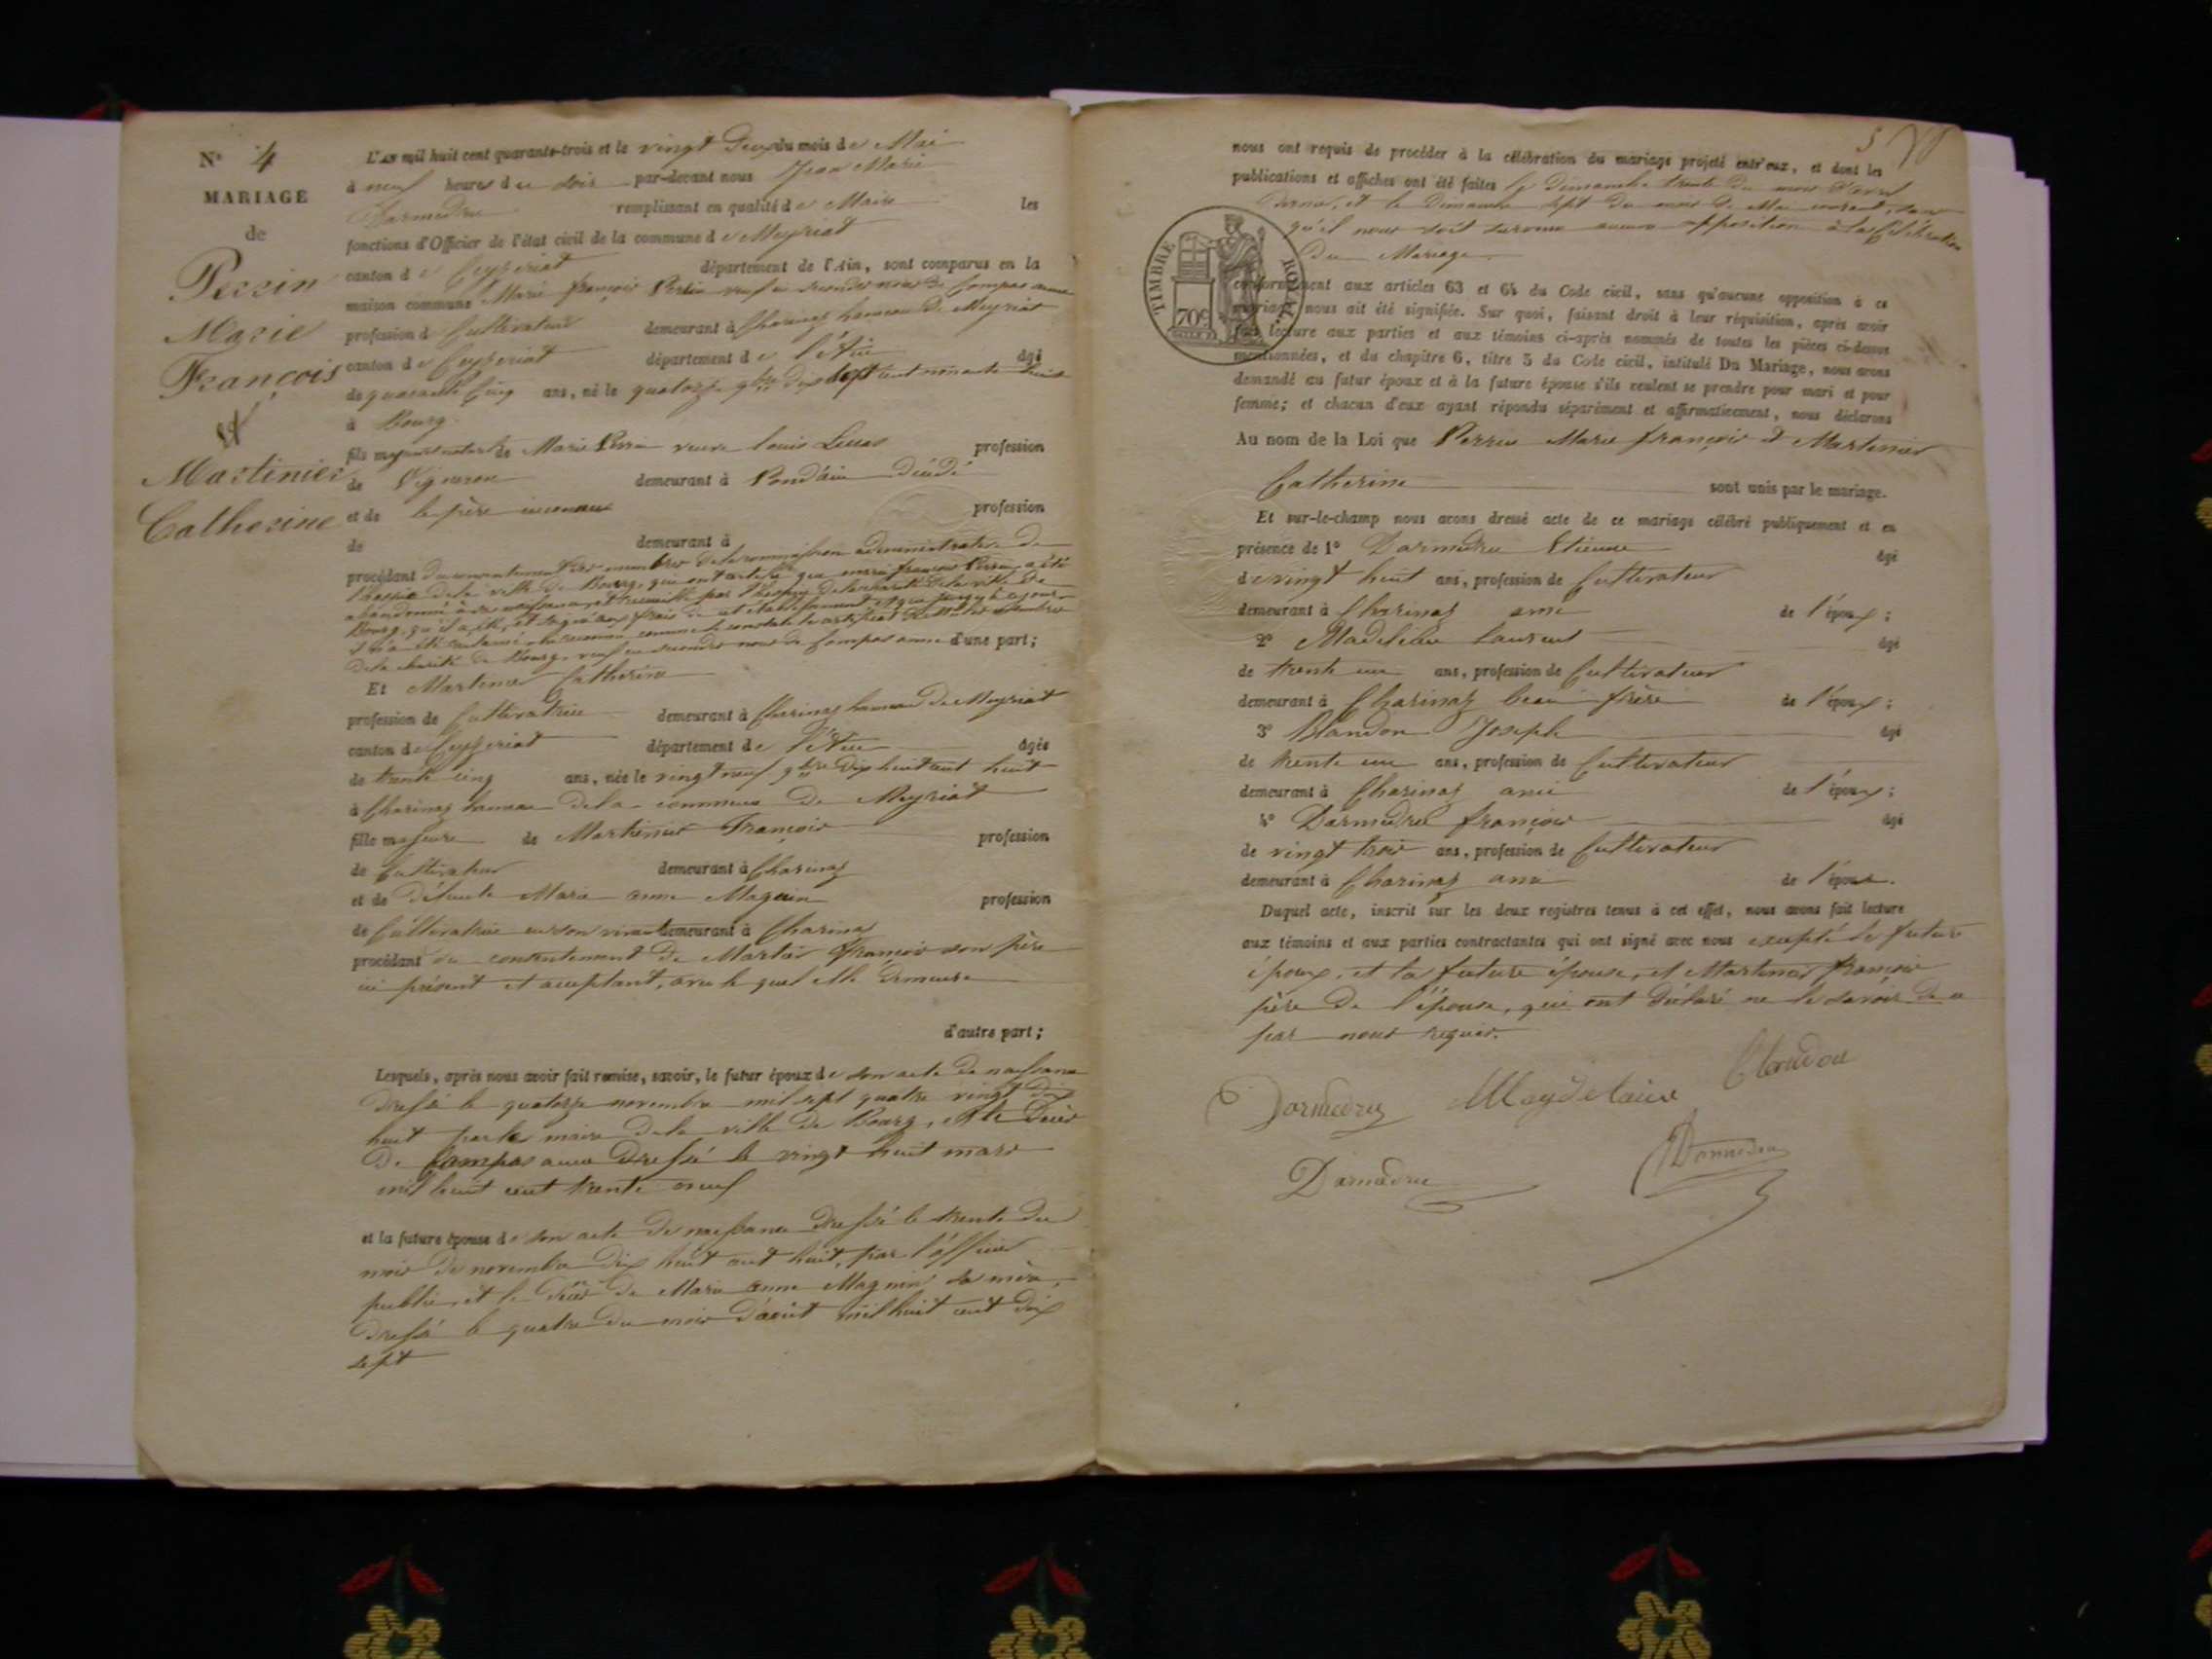 N° 4
MARIAGE
de
Perrin
Marie
François
et
Martinier
Catherine
L'an mil huit cent quarante-trois et le vingt deux du mois de Mai
à neuf heures du soir par-devant nous Jean Marie
Darmedru remplissant en qualité de Maire les
fonctions d'Officier de l'état civil de la commune de Meyriat
canton de Ceyzeriat département de l'Ain, sont comparus en la
maison commune Marie françois Perrin veuf en secondes noces de Compas anne
profession de Cultivateur demeurant à Charinas hameau de Meyriat
canton de Ceyzeriat département de l'Ain âgé
de quarante cinq ans, né le quatorze 9bre dix sept cent nonante huit
à Bourg.
fils majeur naturel de Marie Perrin veuve louis Lucas profession
de Vigneron demeurant à Pondain
et de le père inconnu profession
de demeurant à
procédant du consentement des membres de la commission administrative de
l'hospice de la ville de Bourg, qui ont attesté que marie françois Perrin a été
abandonné à sa naissance, et recueilli par l'hospice de la charité de la ville de
Bourg, qu'il a été, et aux frais de cet établissement, et que jusqu'à ce jour
comme le constate le certificat
de la charité de Bourg, veuf en secondes noces de Compas anne d'une part;
Et Martinier Catherine
profession de Cultivatrice demeurant à Charinas hameau de Meyriat
canton de Ceyzeriat département de l'Ain âgée
de trente cinq ans, née le vingt neuf 9bre dix huit cent huit
à Charinas hameau de la commune de Meyriat
fille majeure de Martinier François profession
de Cultivateur demeurant à Charinas
et de défunte Marie anne Magnin profession
de Cultivatrice en son vivant demeurant à Charinas
procédant du consentement de Martinier François son père
ici présent et acceptant, avec lequel elle demeure
d'autre part;
Lesquels, après nous avoir fait remise, savoir, le futur époux de son acte de naissance
dressé le quatorze novembre mil sept quatre vingt dix
huit par le maire de la ville de Bourg, et le décès
de Compas anne dressé le vingt huit mars
mil huit cent trente neuf
et la future épouse de son acte de naissance dressé le trente du
mois de novembre dix huit cent huit, par l'officier
public, et le décès de Marie anne Magnin sa mère,
dressé le quatre du mois d'août mil huit cent dix
sept
5
nous ont requis de procéder à la célébration du mariage projeté entr'eux, et dont les
publications et affiches ont été faites le dimanche trente du mois d'avril
dernier, et le dimanche sept du mois de Mai courant, sans
qu'il nous soit survenu aucune opposition à la Célébration
du Mariage
TIMBRE ROYAL
70c
conformément aux articles 63 et 64 du Code civil, sans qu'aucune opposition à ce
mariage nous ait été signifiée. Sur quoi, faisant droit à leur réquisition, après avoir
fait lecture aux parties et aux témoins ci-après nommés de toutes les pièces ci-dessus
mentionnées, et du chapitre 6, titre 5 du Code civil, intitulé Du Mariage, nous avons
demandé au futur époux et à la future épouse s'ils veulent se prendre pour mari et pour
femme; et chacun d'eux ayant répondu séparément et affirmativement, nous déclarons
Au nom de la Loi que Perrin Marie françois et Martinier
Catherine sont unis par le mariage.
Et sur-le-champ nous avons dressé acte de ce mariage célébré publiquement et en
présence de 1° Darmedru Etienne âgé
de vingt huit ans, profession de Cultivateur
demeurant à Charinas ami de l'époux;
2° Madelaine Laurent âgé
de trente un ans, profession de Cultivateur
demeurant à Charinas beau frère de l'époux;
3° Blandon Joseph âgé
de trente un ans, profession de Cultivateur
demeurant à Charinas ami de l'époux;
4° Darmedru françois âgé
de vingt trois ans, profession de Cultivateur
demeurant à Charinas ami de l'épouse.
Duquel acte, inscrit sur les deux registres tenus à cet effet, nous avons fait lecture
aux témoins et aux parties contractantes qui ont signé avec nous excepté le futur
époux, et la future épouse, et Martinier françois
père de l'épouse, qui ont déclaré ne le savoir de ce
par nous requis.
Darmedru Maydelaine Blandon
Darmedru Darmedru